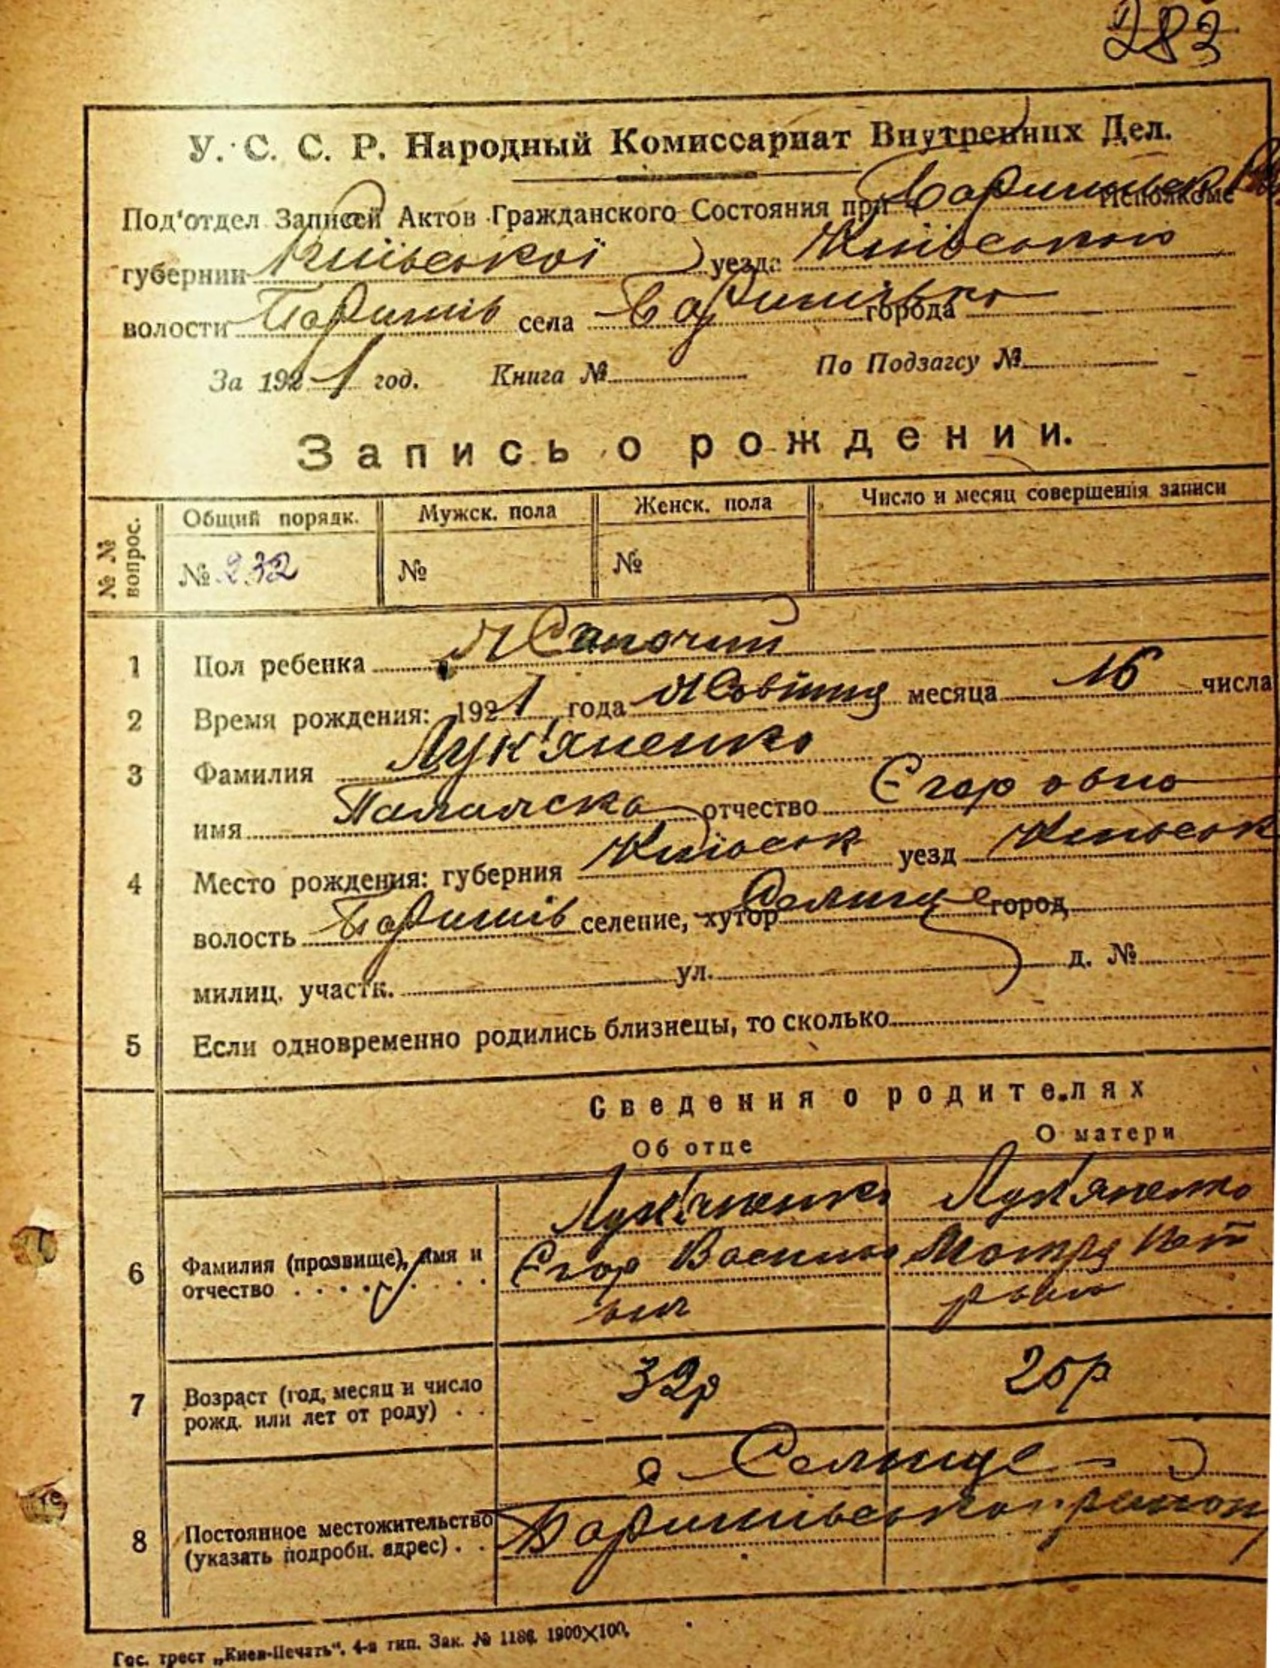 283
У. С. С. Р. Народный Комиссариат Внутренних Дел.
Под'отдел Записей Актов Гражданского Состояния при Исполкоме
губернии Київської уезда Київського
волости Баришів села города
За 1921 год. Книга № По Подзагсу №
Запись о рождении.
№ № вопрос. Общий порядк. Мужск. пола Женск. пола Число и месяц совершения записи
№ 232 № №
1 Пол ребенка Жіночий
2 Время рождения: 1921 года Жовтня месяца 16 числа
3 Фамилия Лук'яненко
имя Палажка отчество Єгоровна
4 Место рождения: губерния Київськ уезд Київськ
волость Баришів селение, хутор Селище город
милиц. участк. ул. д. №
5 Если одновременно родились близнецы, то сколько
Сведения о родителях
Об отце О матери
6 Фамилия (прозвище), имя и отчество Лук'яненко Єгор Василь Лук'яненко Мотря
7 Возраст (год, месяц и число рожд. или лет от роду) 32р 25р
8 Постоянное местожительство (указать подробн. адрес) с Селище
Баришівського район
Гос. трест „Киев-Печать“. 4-я тип. Зак. № 1186. 1900X100.